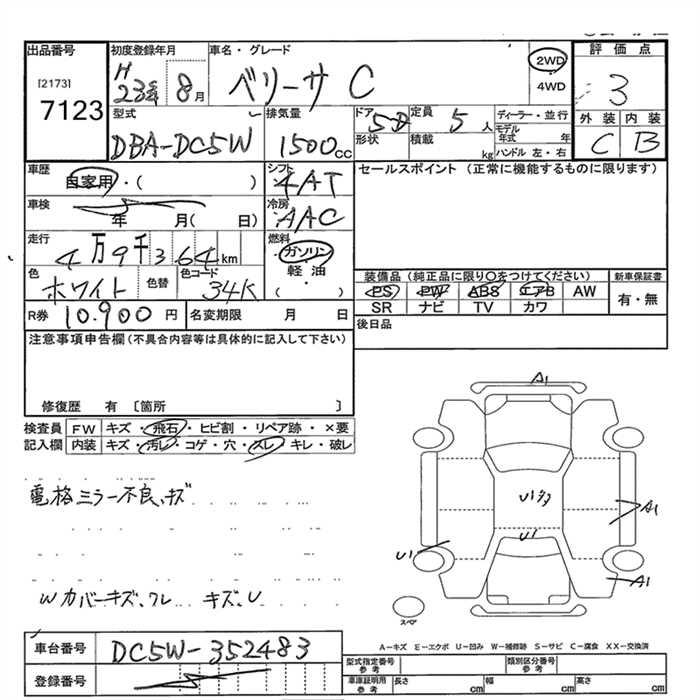 出品番号
[2173]
7123
初度登録年月
H
23年 8月
車名・グレード
ベリーサ C
2WD
4WD
評価点
3
外装 内装
C B
型式
DBA-DC5W
排気量
1500cc
ドア
5D
形状
定員
5人
積載
kg
ディーラー・並行
モデル年式 年
ハンドル 左・右
車歴
自家用・( )
シフト
4AT
セールスポイント (正常に機能するものに限ります)
車検
年 月( 日)
冷房
AAC
走行
4万9千364km
燃料
ガソリン
軽油
・
( )
色
ホワイト
色替
色コード
34K
装備品 (純正品に限り○をつけてください)
新車保証書
PS PW ABS エアB AW
有・無
SR ナビ TV カワ
R券 10.900円
名変期限 月 日
後日品
注意事項申告欄(不具合内容等は具体的に記入して下さい)
修復歴 有 〔箇所 〕
検査員記入欄
FW キズ・飛石・ヒビ割・リペア跡・×要
内装 キズ・汚レ・コゲ・穴・スレ・キレ・破レ
電格ミラー不良、キズ
Wカバーキズ、ワレ キズ、U
A1
Uｷｽﾞ
U1
A1
U1
A1
スペア
A-キズ E-エクボ U-凹み W-補修跡 S-サビ C-腐食 XX-交換済
車台番号 DC5W-352483
登録番号
型式指定番号 参考
類別区分番号 参考
車庫証明用 参考
長さ cm
幅 cm
高さ cm